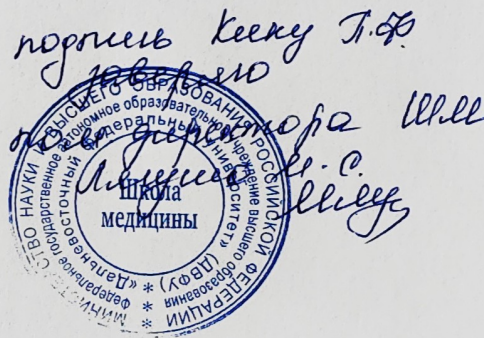 подпись Кику П.Ф.
заверяю
пом. директора ШМ
МИНИСТЕРСТВО НАУКИ И ВЫСШЕГО ОБРАЗОВАНИЯ РОССИЙСКОЙ ФЕДЕРАЦИИ
Федеральное государственное автономное образовательное учреждение высшего образования
«Дальневосточный федеральный университет» (ДВФУ)
Школа
медицины